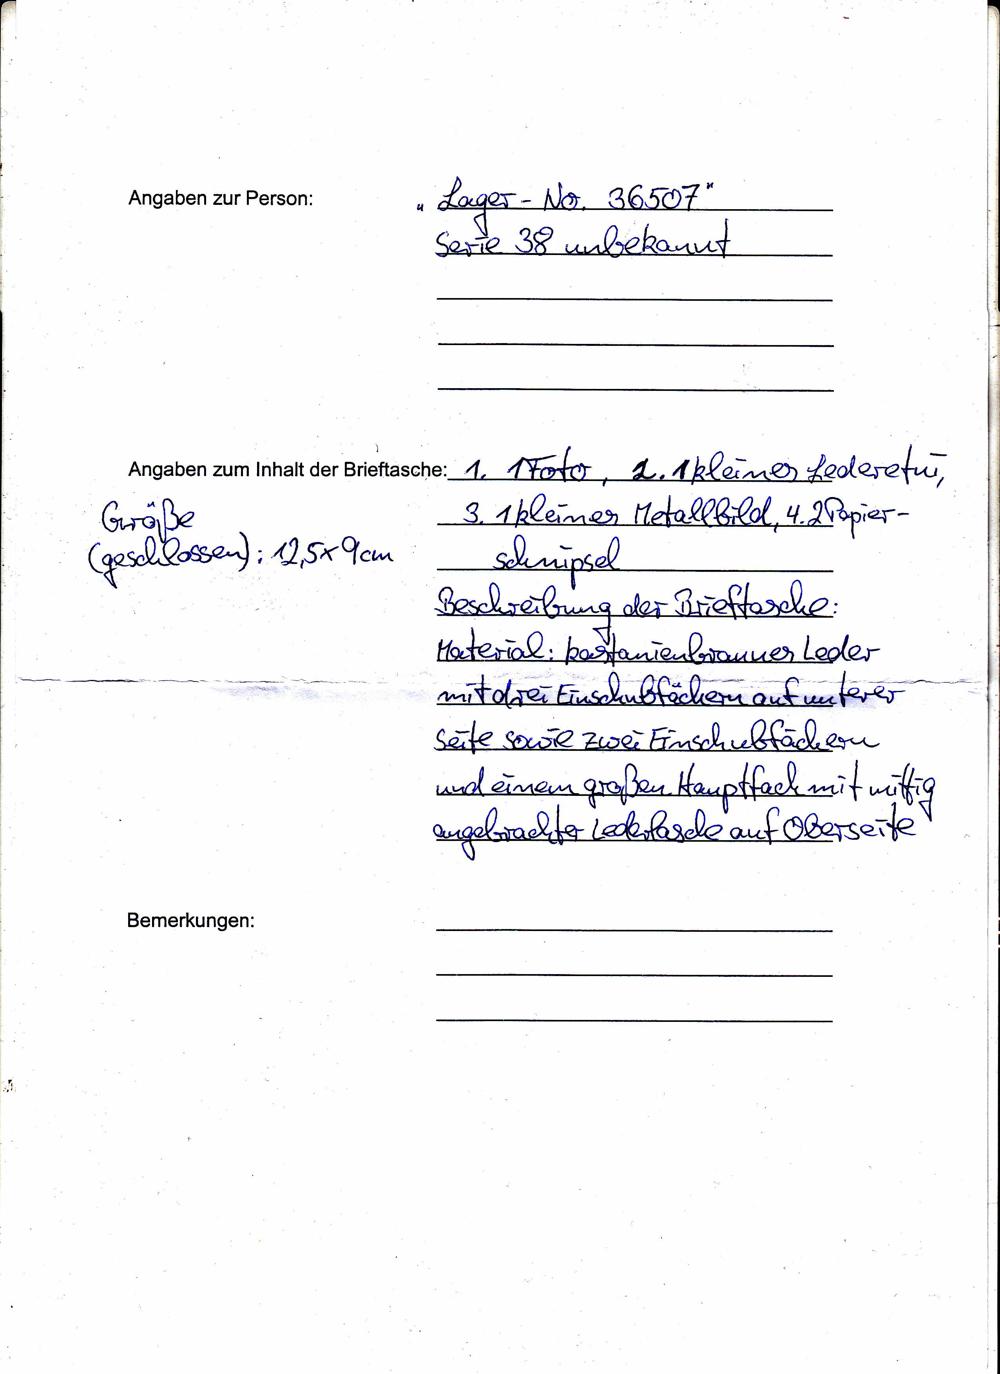 Angaben zur Person: „Lager-No. 36507"
Serie 38 unbekannt
Angaben zum Inhalt der Brieftasche: 1. 1 Foto, 2. 1 kleiner Lederetui,
3. 1 kleiner Metallbild, 4. 2 Papier-
schnipsel
Größe
(geschlossen): 12,5x9cm
Beschreibung der Brieftasche:
Material: kastanienbrauner Leder
mit drei Einschubfächern auf unterer
Seite sowie zwei Einschubfächern
und einem großen Hauptfach mit mittig
angebrachter Lederlasche auf Oberseite
Bemerkungen: